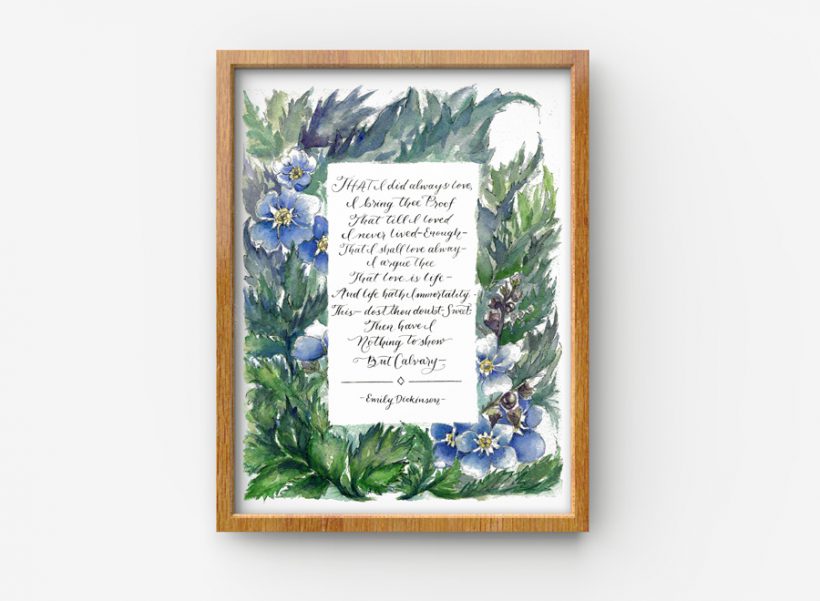 THAT I did always love,
I bring thee Proof
That till I loved
I never lived-Enough-
That I shall love alway-
I argue thee
That love is life-
And life hath Immortality-
This-dost thou doubt-Sweet
Then have I
Nothing to show
But Calvary-
-Emily Dickinson-